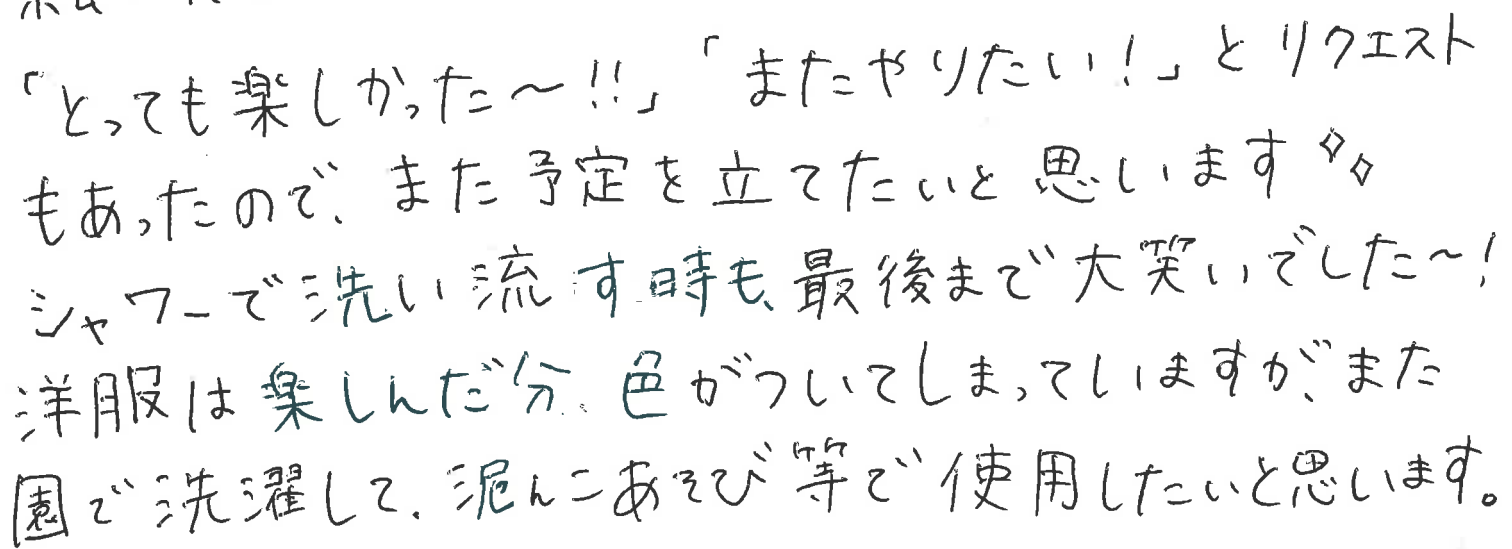 「とっても楽しかった〜!!」「またやりたい!」とリクエスト
もあったので、また予定を立てたいと思います✧✧
シャワーで洗い流す時も、最後まで大笑いでした〜!
洋服は楽しんだ分、色がついてしまっていますが、また
園で洗濯して、泥んこあそび等で使用したいと思います。